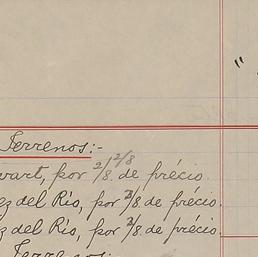 "
Terrenos:-
2/8
wart, por 2/8. de précio.
ez del Rio, por 3/8. de précio.
z del Rio, por 3/8. de précio.
Terrenos: